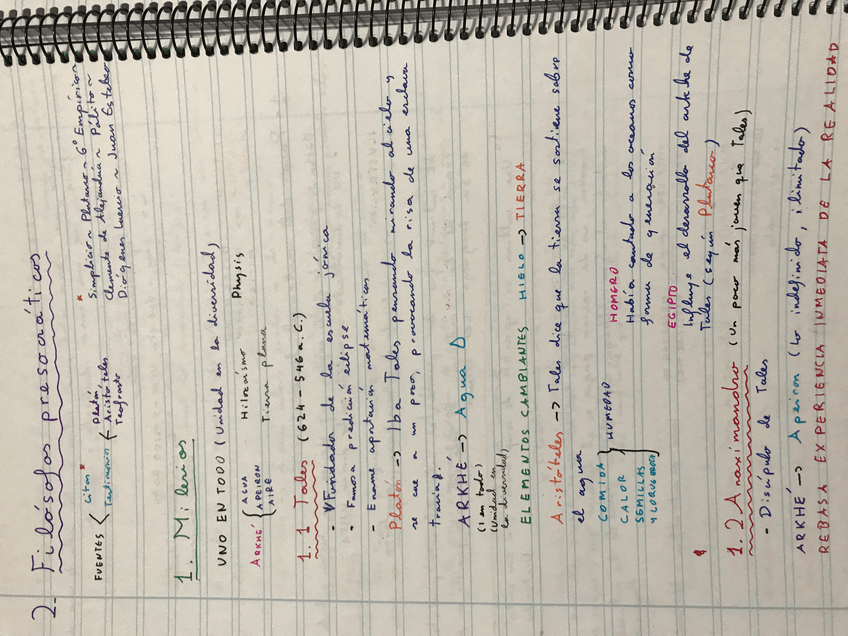 2. Filósofos presocráticos
FUENTES < Citas*
Testimonios { Platón
Aristóteles
Teofrasto
* Simplicio ~ Plutarco ~ 6º Empírico ~
Clemente de Alejandría ~ Pálito ~
Diogenes Laercio ~ Juan Estobeo
1. Milesios
UNO EN TODO (Unidad en la diversidad)
ARKHÉ { AGUA
APEIRON
AIRE
Hilozoísmo Physis
Tierra plana
1.1 Tales (624-546 a.C.)
- Fundador de la escuela jónica
- Famosa predición eclipse
- Enorme aportación matemáticas
Platón -> Iba Tales pensando mirando al cielo y
se cae a un pozo, provocando la risa de una esclava
tracia.
ARKHÉ -> Agua Δ
(1 en todo)
(Unidad en
la diversidad)
ELEMENTOS CAMBIANTES HIELO -> TIERRA
Aristóteles -> Tales dice que la tierra se sostiene sobre
el agua
COMIDA
CALOR
SEMILLAS
} HUMEDAD
HOMERO
Había cantado a los oceanos como
forma de generación
EGIPTO
Influye el desarrollo del arkhe de
Tales (según Plutarco)
1.2 Anaximandro (Un poco más joven que Tales)
- Discípulo de Tales
ARKHÉ -> Apeiron (Lo indefinido, ilimitado)
REBASA EXPERIENCIA INMEDIATA DE LA REALIDAD